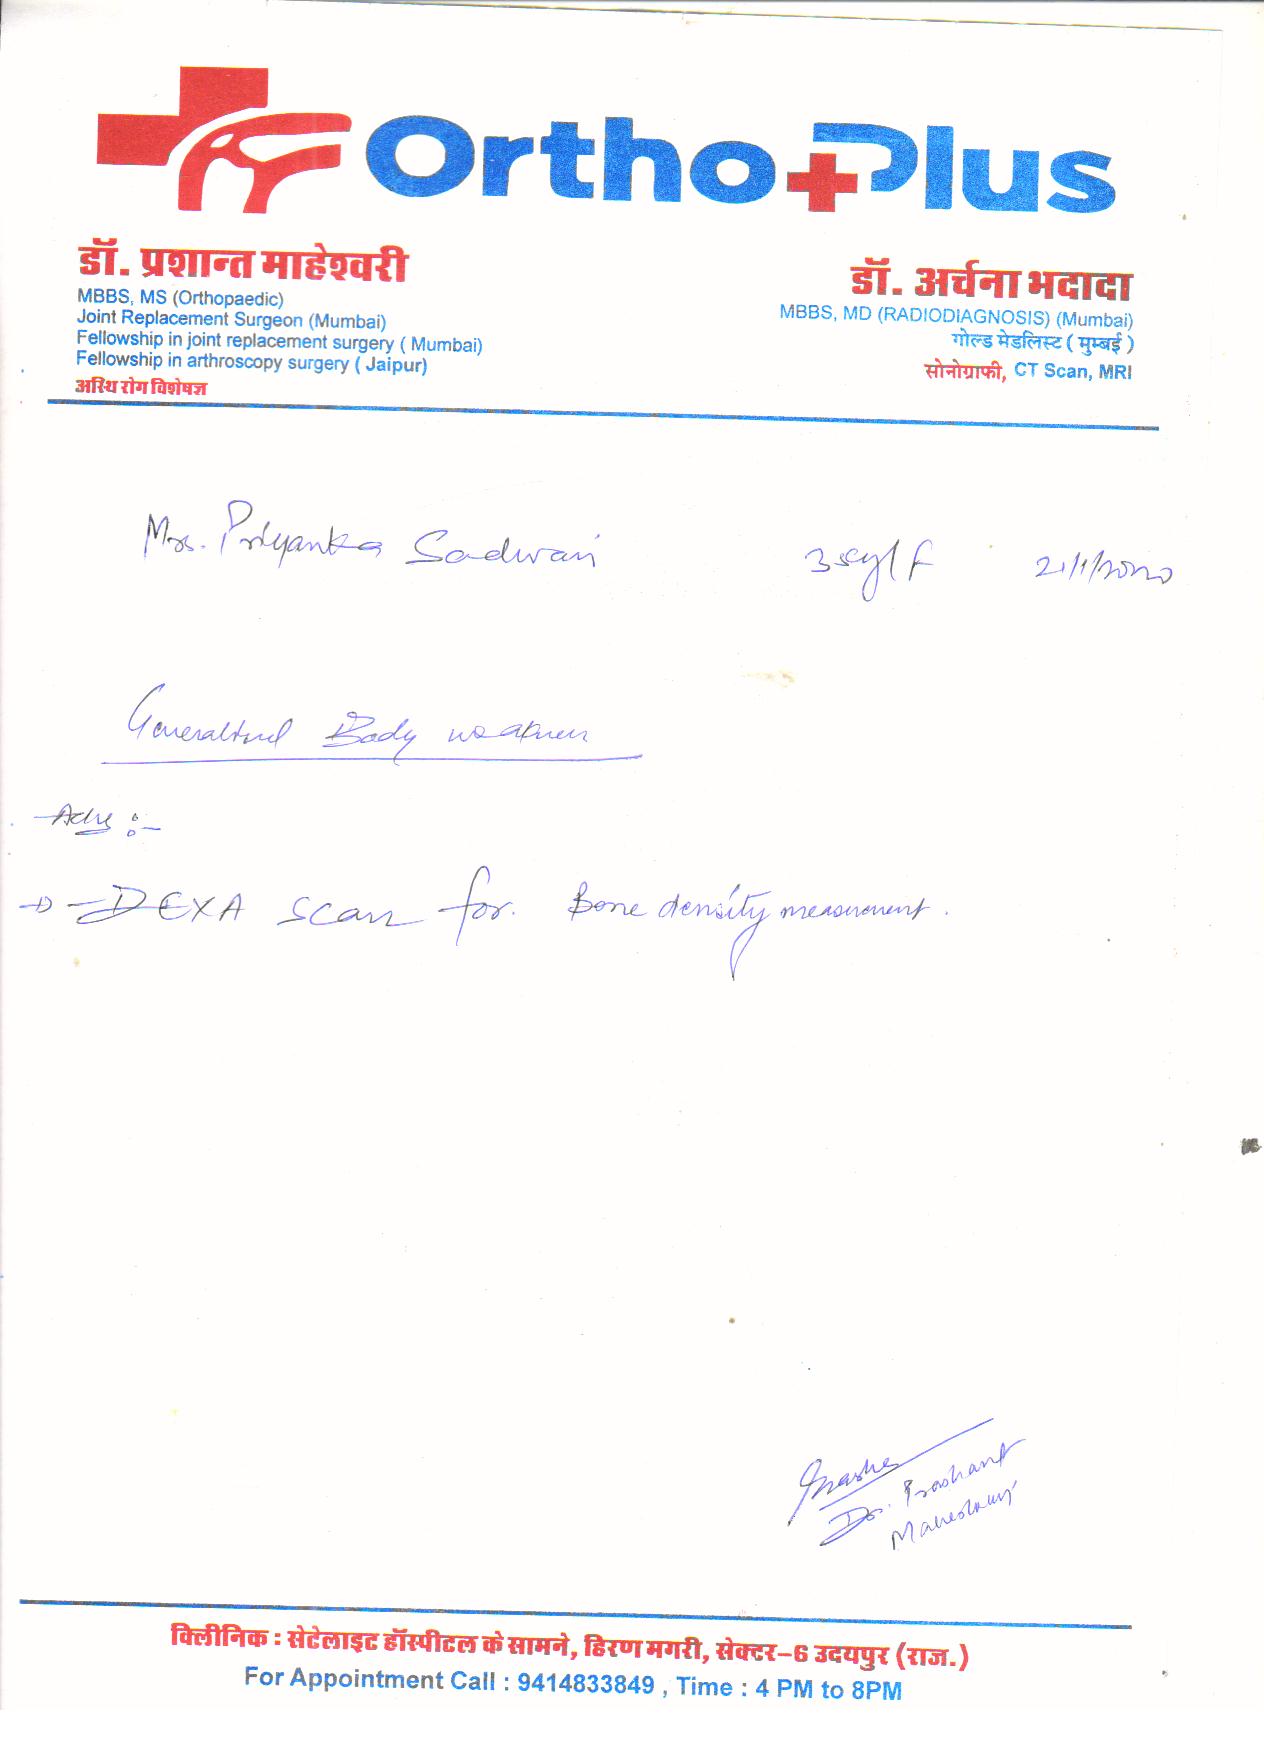 Ortho Plus
डॉ. प्रशान्त माहेश्वरी
MBBS, MS (Orthopaedic)
Joint Replacement Surgeon (Mumbai)
Fellowship in joint replacement surgery ( Mumbai)
Fellowship in arthroscopy surgery ( Jaipur)
अस्थि रोग विशेषज्ञ
डॉ. अर्चना भदादा
MBBS, MD (RADIODIAGNOSIS) (Mumbai)
गोल्ड मेडलिस्ट ( मुम्बई )
सोनोग्राफी, CT Scan, MRI
Mrs. Priyanka Sadwani 21/1/2020
Generalised Body weakness
Adv :-
→ DEXA scan for. Bone density measurement.
Dr. Prashant
Maheshwari
क्लिीनिक : सेटेलाइट हॉस्पीटल के सामने, हिरण मगरी, सेक्टर-6 उदयपुर (राज.)
For Appointment Call : 9414833849 , Time : 4 PM to 8PM